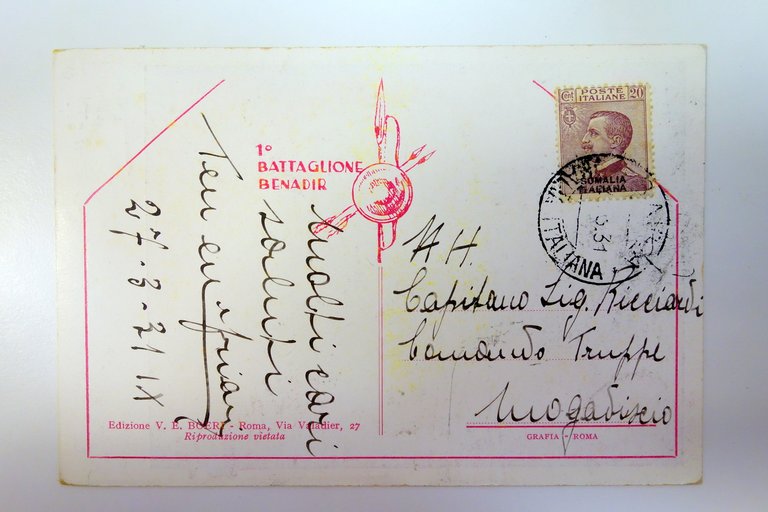 1º
BATTAGLIONE
BENADIR
Molti cari
saluti
27-3-31 IX
Edizione V. E. BOERI - Roma, Via Valadier, 27
Riproduzione vietata
POSTE
ITALIANE
Cent. 20
SOMALIA
ITALIANA
3.31
ITALIANA
Capitano Sig. Ricciardi
Comando Truppe
Mogadiscio
GRAFIA - ROMA